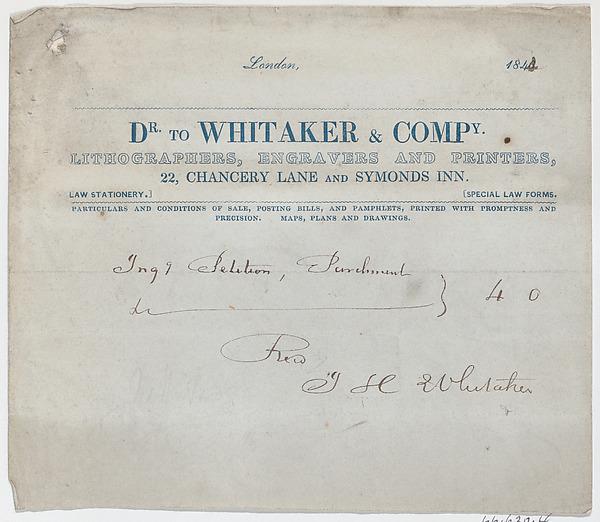 London, 184
DR. TO WHITAKER & COMPY.
LITHOGRAPHERS, ENGRAVERS AND PRINTERS,
22, CHANCERY LANE AND SYMONDS INN.
LAW STATIONERY.] [SPECIAL LAW FORMS.
PARTICULARS AND CONDITIONS OF SALE, POSTING BILLS, AND PAMPHLETS, PRINTED WITH PROMPTNESS AND
PRECISION. MAPS, PLANS AND DRAWINGS.
Ingg Petition, Parchment
&c } 4 0
Recd
J H Whitaker